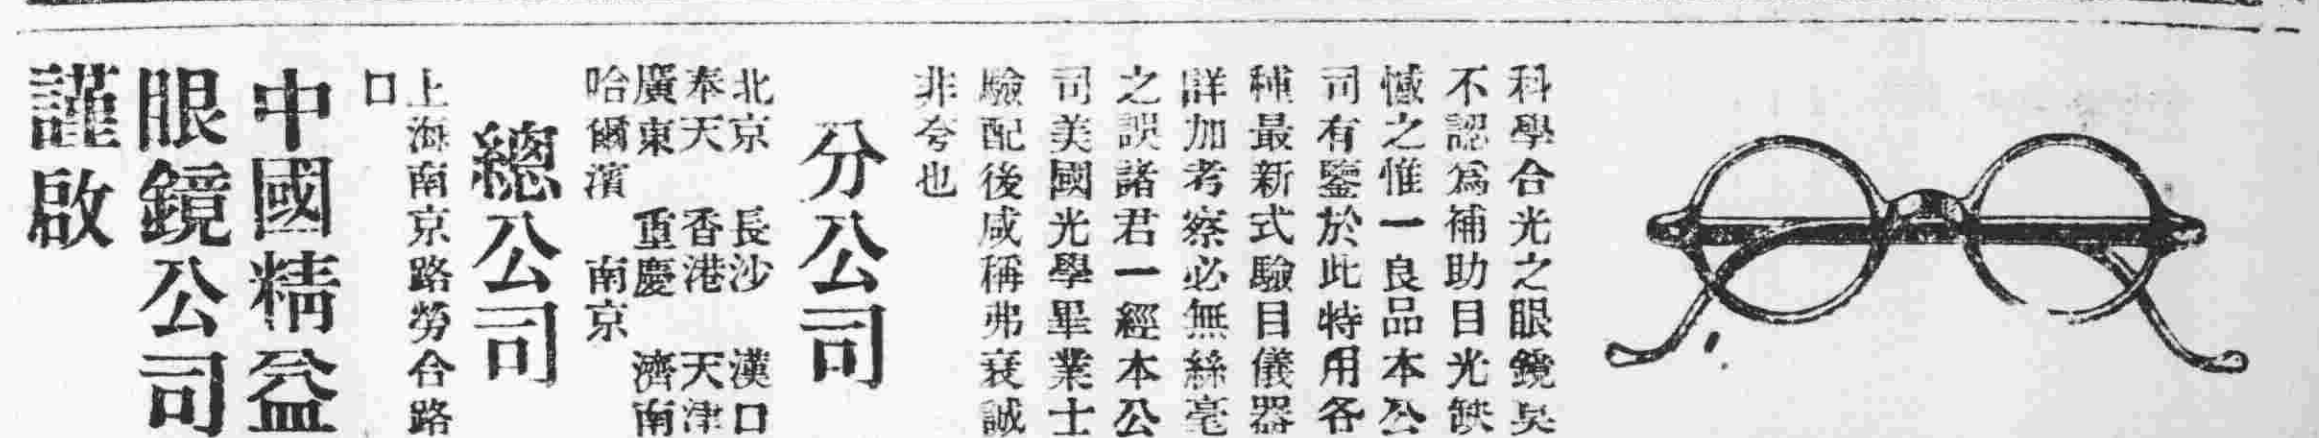 科學合光之眼鏡吳
不認爲補助目光缺
憾之惟一良品本公
司有鑒於此特用各
種最新式驗目儀器
詳加考察必無絲毫
之誤諸君一經本公
司美國光學畢業士
驗配後咸稱弗衰誠
非夸也
分公司
北京 長沙 漢口
奉天 香港 天津
廣東 重慶 濟南
哈爾濱 南京
總公司
上海南京路勞合路
口
中國精益
眼鏡公司
謹啟